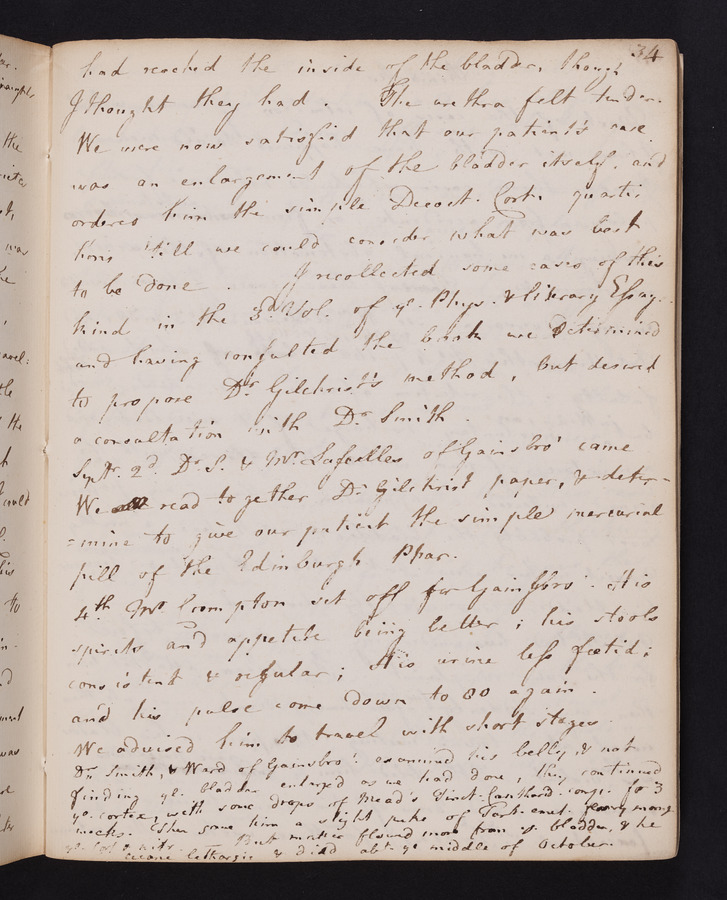 34
had reached the inside of the bladder, though
I thought they had. The urethra felt tender.
We were now satisfied that our patient's case
was an enlargement of the bladder itself, and
ordered him the simple Decoct. Cort. quarti
horis till we could consider what was best
to be done. I recollected some cases of this
kind in the 3d. Vol. of ye. Phys. & literary Essay.
and having consulted the book we determined
to propose Dr. Gilchrist's method, but desired
a consultation with Dr. Smith.
Septr. 2d. Dr. S. & Mr. of Gainsbro' came
We read together Dr. Gilchrist paper, & deter-
=mine to give our patient the simple mercurial
pill of the Edinburgh Phar.
4th. Mr. Crompton set off for Gainsbro'. His
spirits and appetite being better; his stools
consistent & regular; His urine less foetid;
and his pulse come down to 80 again.
We advised him to travel with short stages.
Dr. Smith, & Ward of Gainsbro'. examined his belly, & not
finding ye. bladder enlarged as we had done, they continued
ye. cortex, with some drops of Mead's Tinct. Canthard. for 3
weeks. Then gave him a slight puke of Tart. emet. every morng
But matter flowed more from ye. bladder, & he
became lethargic & died abt. ye middle of October.